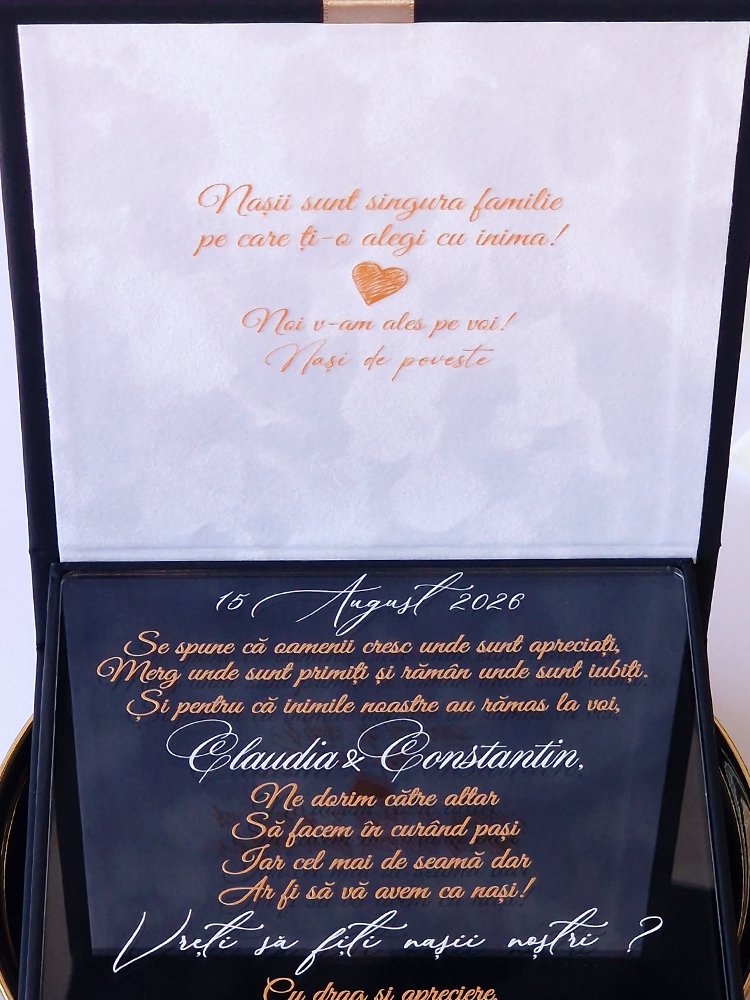 Nașii sunt singura familie
pe care ți-o alegi cu inima!
Noi v-am ales pe voi!
Nași de poveste
15 August 2026
Se spune că oamenii cresc unde sunt apreciați,
Merg unde sunt primiți și rămân unde sunt iubiți.
Și pentru că inimile noastre au rămas la voi,
Claudia & Constantin,
Ne dorim către altar
Să facem în curând pași
Iar cel mai de seamă dar
Ar fi să vă avem ca nași!
Vreți să fiți nașii noștri ?
Cu drag și apreciere,